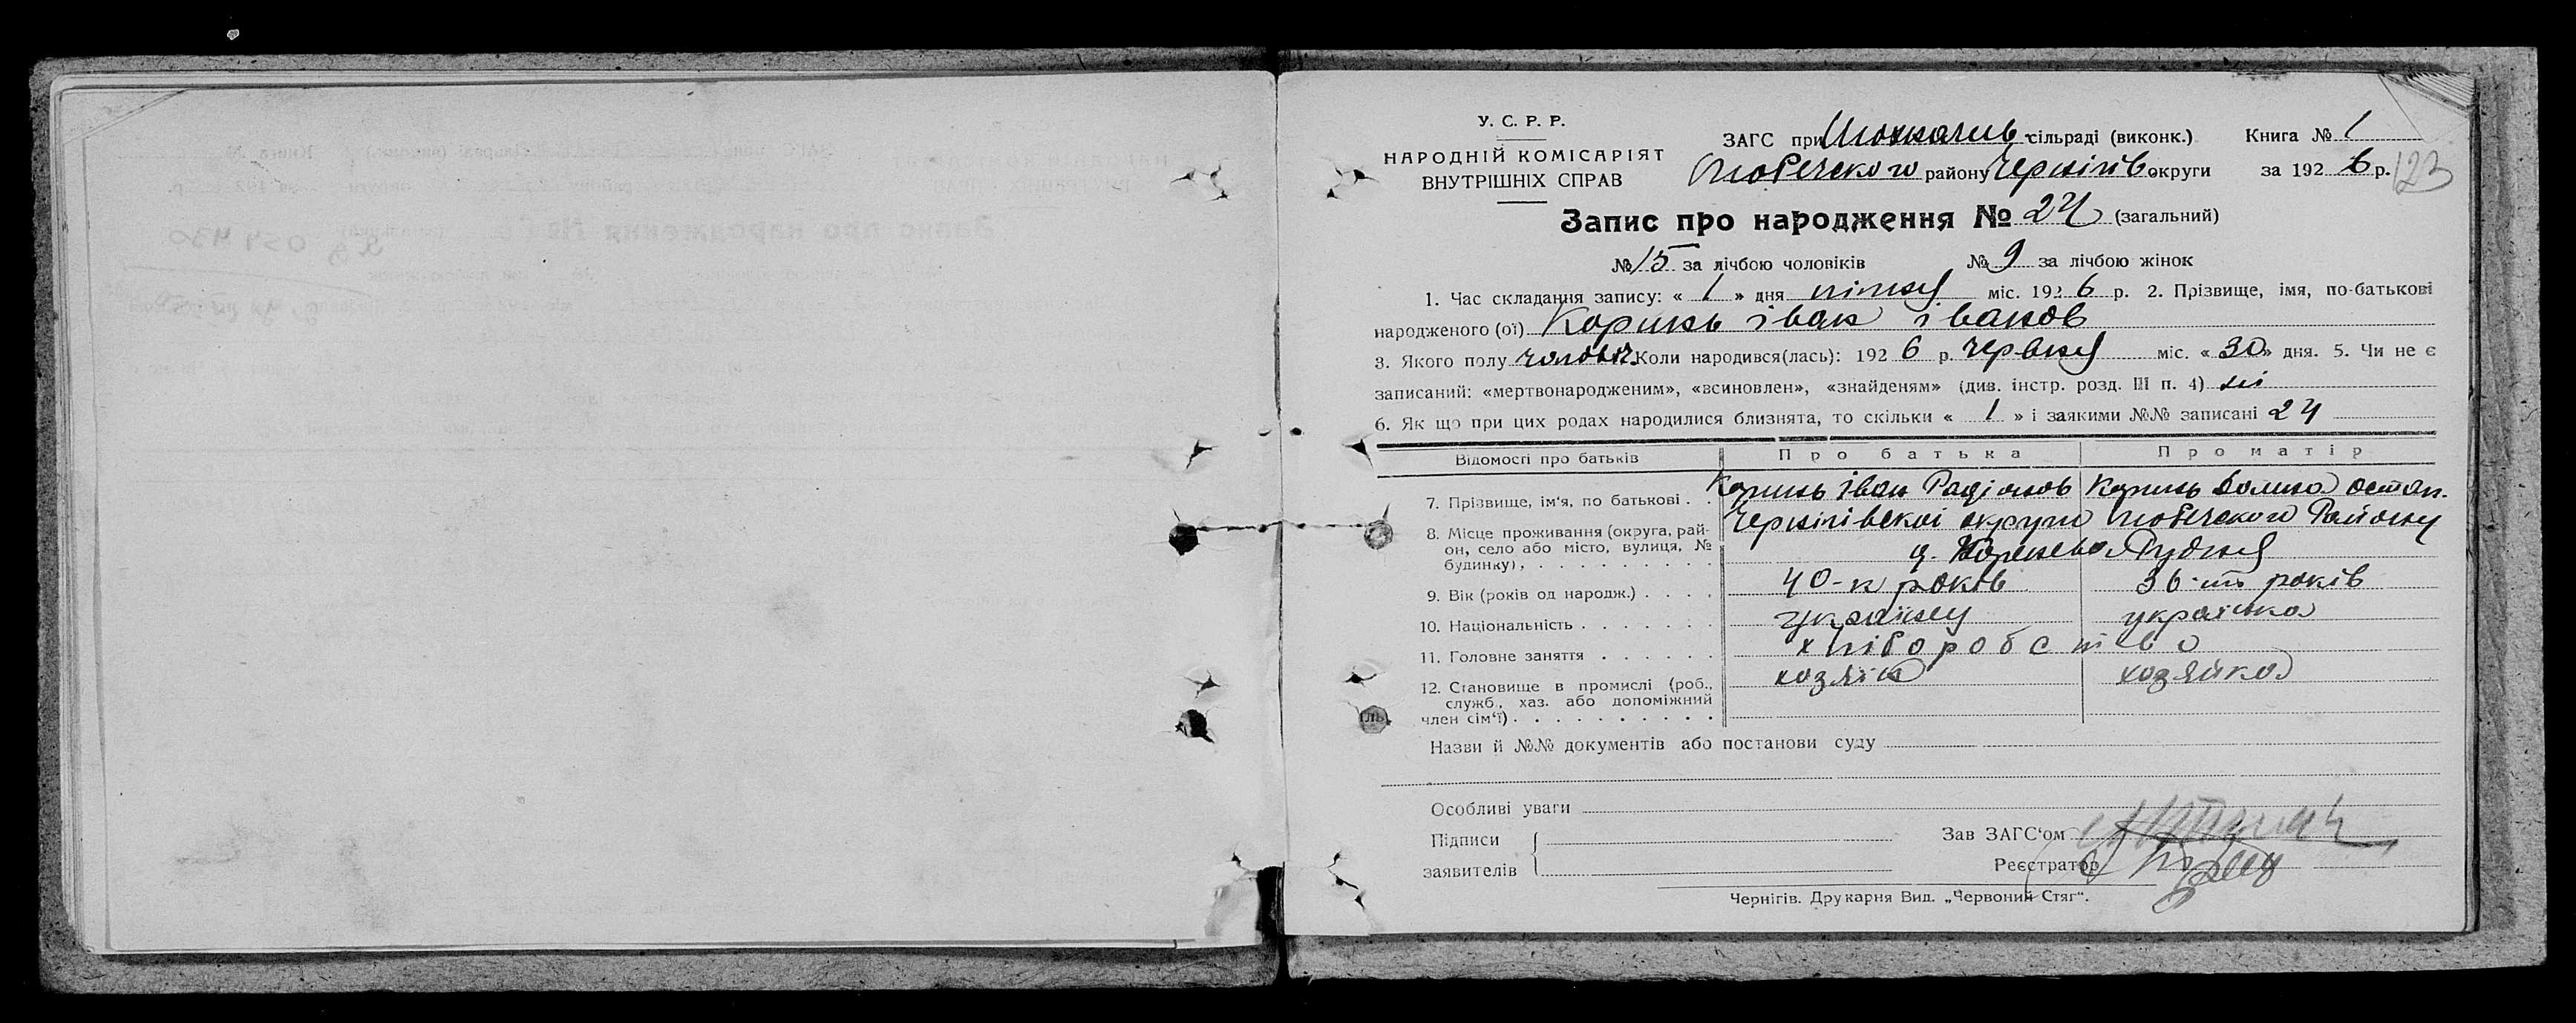 У. С. Р. Р.
НАРОДНІЙ КОМІСАРІЯТ
ВНУТРІШНІХ СПРАВ
ЗАГС при сільраді (виконк.) Книга № 1
Любечского району Чернігів округи за 1926 р. 123
Запис про народження № 24 (загальний)
№ 15 за лічбою чоловіків № 9 за лічбою жінок
1. Час складання запису: « 1 » дня липня міс. 1926 р. 2. Прізвище, імя, по-батькові
народженого (ої) Коринь іван іванов
3. Якого полу чоловіч. Коли народився(лась): 1926 р. червня міс. «30» дня. 5. Чи не є
записаний: «мертвонародженим», «всиновлен», «знайденям» (див. інстр. розд. III п. 4) ні
6. Як що при цих родах народилися близнята, то скільки « 1 » і заякими №№ записані 24
Відомості про батьків Про батька Про матір
7. Прізвище, ім'я, по батькові . . Коринь іван Радіонов Коринь остап.
8. Місце проживання (округа, рай- Чернігівскоі округи Любечского Району
он, село або місто, вулиця, №
будинку), . . . . . . . . . . Рудня
9. Вік (років од народж.) . . . . 40-к років 36-ть років
10. Національність . . . . . . . українец українка
11. Головне заняття . . . . . . хліборобство
12. Становище в промислі (роб., хозяін хозяйка
служб., хаз. або допоміжний
член сім'ї) . . . . . . . . . .
Назви й №№ документів або постанови суду
Особливі уваги
Підписи
заявителів
Зав ЗАГС'ом
Реєстратор
Чернігів. Друкарня Вид. „Червоний Стяг".